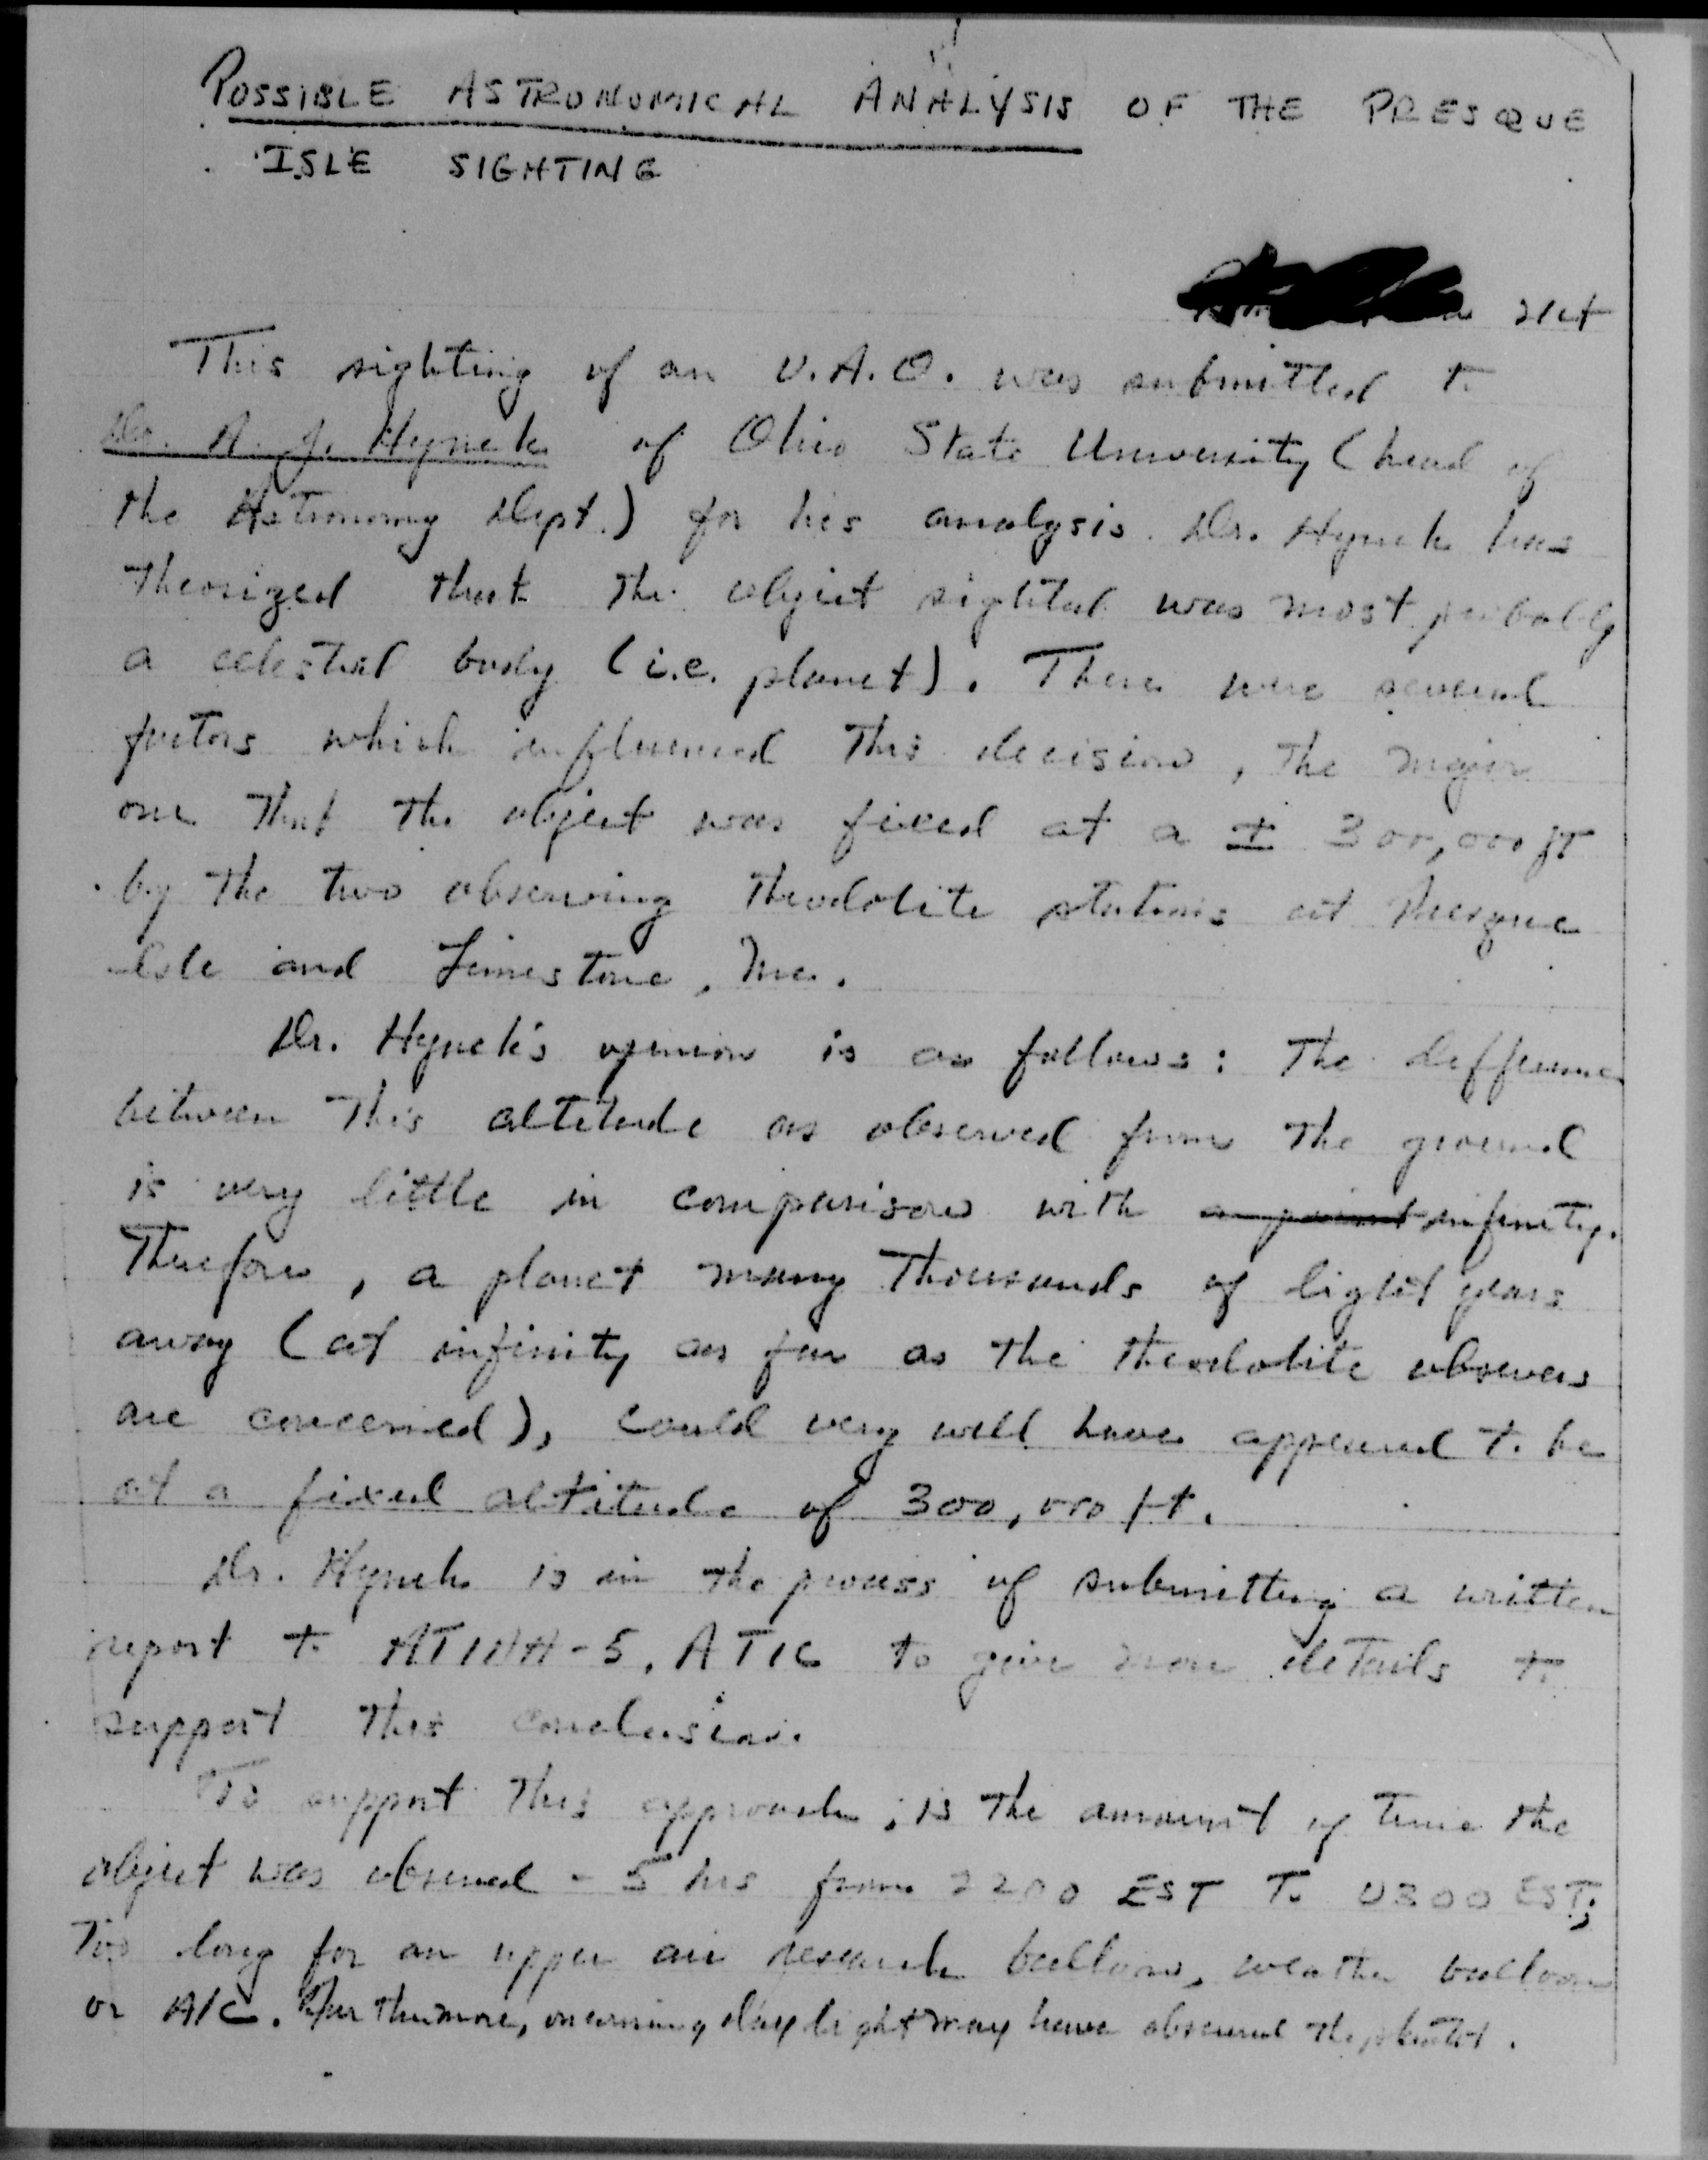 POSSIBLE ASTRONOMICAL ANALYSIS OF THE PRESQUE
ISLE SIGHTING
This sighting of an U.A.O. was submitted to
Dr. A. J. Hynek of Ohio State University (head of
the Astronomy Dept.) for his analysis. Dr. Hynek has
theorized that the object sighted was most probably
a celestial body (i.e. planet). There were several
factors which influenced this decision, the major
one that the object was fixed at a ± 300,000 ft
by the two observing theodolite stations at Presque
Isle and Limestone, Me.
Dr. Hynek's opinion is as follows: The difference
between this altitude as observed from the ground
is very little in comparison with a point infinity.
Therefore, a planet many thousands of light years
away (at infinity as far as the theodolite observers
are concerned), could very well have appeared to be
at a fixed altitude of 300,000 ft.
Dr. Hynek is in the process of submitting a written
report to ATIAA-5, ATIC to give more details to
support this conclusion.
To support this approach, is the amount of time the
object was observed - 5 hrs from 2200 EST To 0300 EST;
Too long for an upper air research balloon, weather balloon
or A/C. Furthermore, oncoming daylight may have obscured the planet.